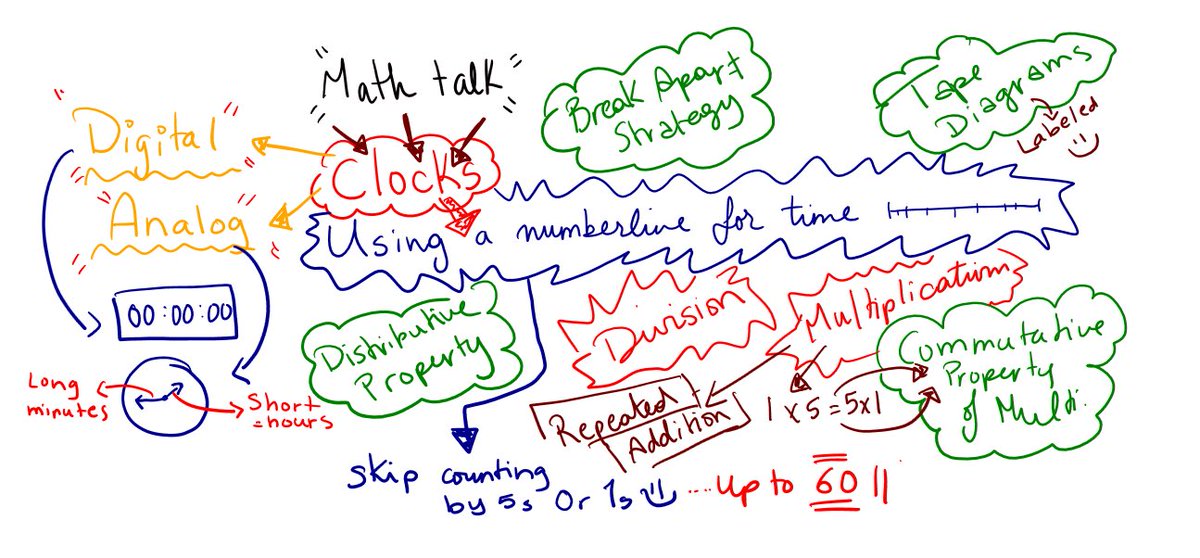 "Math talk"
Clocks
"Digital"
"Analog"
00:00:00
Long
minutes
Short
=hours
Break Apart
Strategy
Tape
Diagrams
Labeled
Using a numberline for time
Distributive
Property
Division
Multiplication
Repeated
Addition
1 x 5 = 5x1
Commutative
Property
of Multi.
skip counting
by 5s Or 1s ....Up to 60 !!